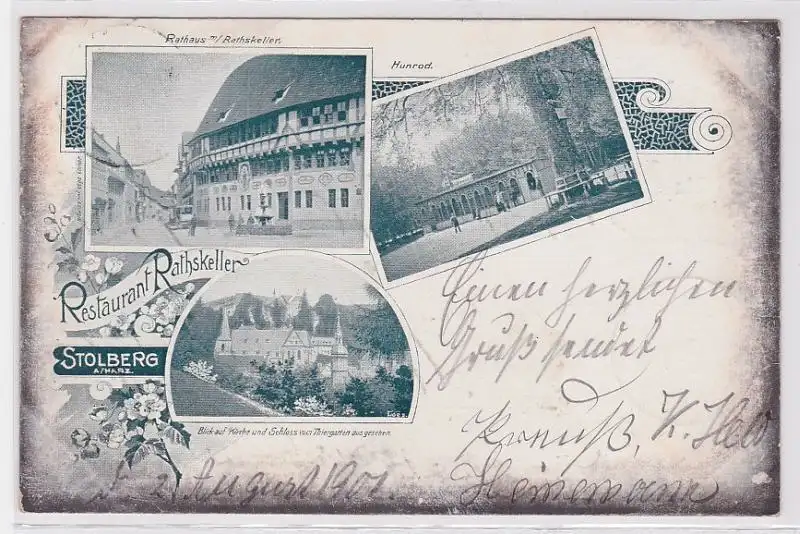 Rathaus m/ Rathskeller.
Hunrod.
Restaurant Rathskeller
STOLBERG
A/HARZ.
Blick auf Kirche und Schloss vom Thiergarten aus gesehen.
Einen herzlichen
Gruß sendet
Preuß, K.
Heinemann
d. 2. August 1901.